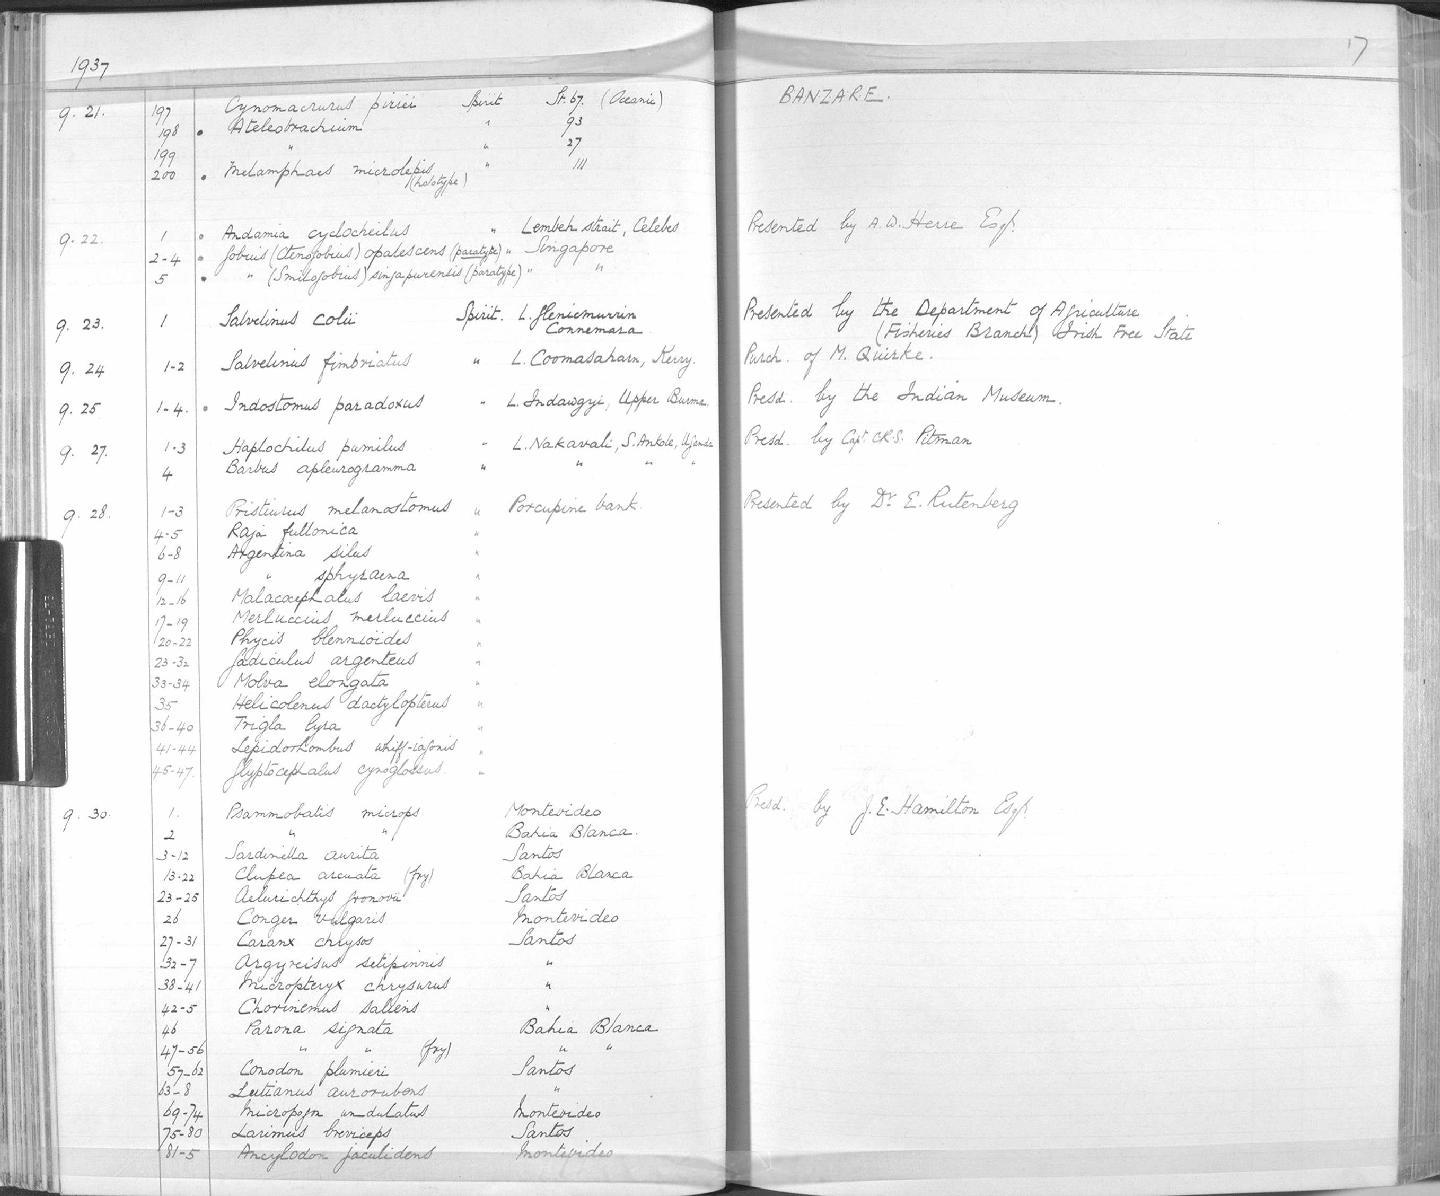 1937
17
9. 21. 197 Cynomacrurus piriei Spirit St. 67. (Oceanic) BANZARE.
198 . Ateleobrachium " 93
199 " " 27
200 . Melamphaes microlepis " 111
(holotype)
9. 22. 1 . Andamia cyclocheilus " Lembeh strait, Celebes Presented by A.W. Herre Esq.
2-4 . Gobius (Ctenogobius) opalescens (paratype) " Singapore
5 . " (Smilogobius) singapurensis (paratype) " "
9. 23. 1 Salvelinus colii Spirit. L. Glenicmurrin Presented by the Department of Agriculture
Connemara (Fisheries Branch) Irish Free State
9. 24 1-2 Salvelinus fimbriatus " L. Coomasaharn, Kerry. Purch. of M. Quirke.
9. 25 1-4. . Indostomus paradoxus " L. Indawgyi, Upper Burma. Presd. by the Indian Museum.
9. 27. 1-3 Haplochilus pumilus " L. Nakavali, S. Ankole, Uganda Presd. by Capt. C.R.S. Pitman
4 Barbus apleurogramma " " " "
9. 28. 1-3 Pristiurus melanostomus " Porcupine bank. Presented by Dr E. Rutenberg
4-5 Raja fullonica "
6-8 Argentina silus "
9-11 " sphyraena "
12-16 Malacocephalus laevis "
17-19 Merluccius merluccius "
20-22 Phycis blennioides "
23-32 Gadiculus argenteus "
33-34 Molva elongata "
35 Helicolenus dactylopterus "
36-40 Trigla lyra "
41-44 Lepidorhombus whiff-iagonis "
45-47. Glyptocephalus cynoglossus "
9. 30. 1. Psammobatis microps Montevideo Presd. by J.E. Hamilton Esq.
2 " " Bahia Blanca.
3-12 Sardinella aurita Santos
13-22 Clupea arcuata (fry) Bahia Blanca
23-25 Aelurichthys gronovii Santos
26 Conger vulgaris Montevideo
27-31 Caranx chrysos Santos
32-7 Argyreisus setipinnis "
38-41 Micropteryx chrysurus "
42-5 Chorinemus saliens "
46 Parona signata Bahia Blanca
47-56 " " (fry) " "
57-62 Conodon plumieri Santos
63-8 Lutianus aurorubens "
69-74 Micropogon undulatus Montevideo
75-80 Larimus breviceps Santos
81-5 Ancylodon jaculidens Montevideo